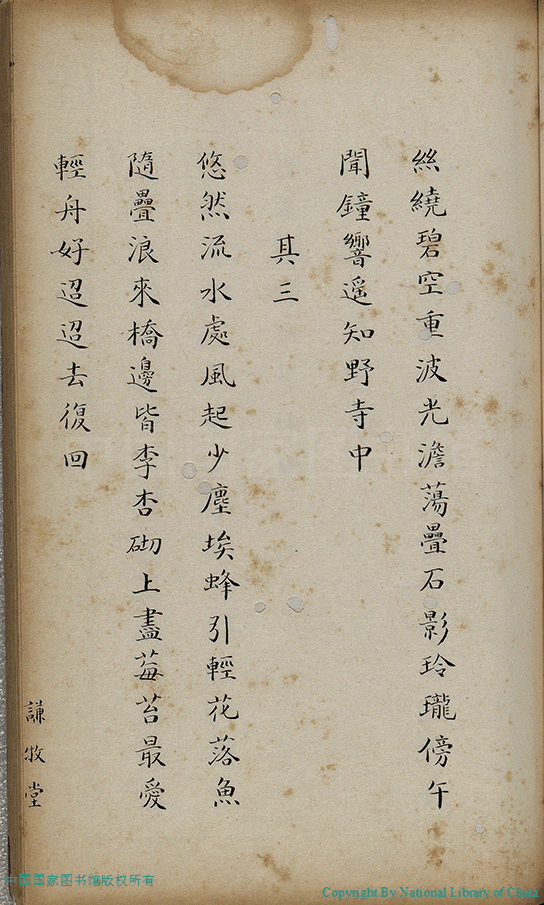 絲繞碧空重波光澹蕩疊石影玲瓏傍午
聞鐘響遥知野寺中
其三
悠然流水處風起少塵埃蜂引輕花落魚
隨疊浪來橋邊皆李杏砌上盡莓苔最愛
輕舟好迢迢去復回
謙牧堂
中国国家图书馆版权所有
Copyright By National Library of China